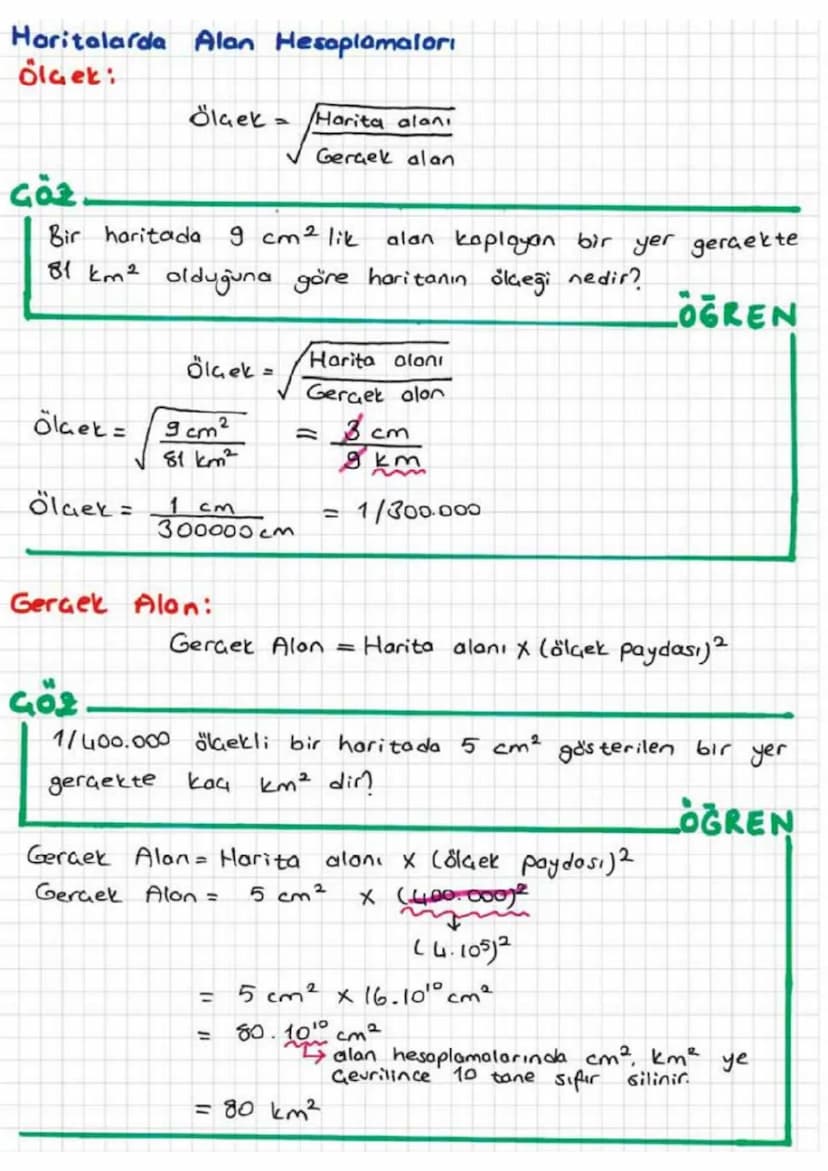 Haritalarda Alan Hesaplamaları
Ölçek:
Ölçek = √ Harita alanı / Gerçek alan
ÇÖZ
Bir haritada 9 cm² lik alan kaplayan bir yer gerçekte
81 km² olduğuna göre haritanın ölçeği nedir?
ÖĞREN
Ölçek = √ Harita alanı / Gerçek alan
Ölçek = √ 9 cm² / 81 km² = 3 cm / 9 km
Ölçek = 1 cm / 300000 cm = 1/300.000
Gerçek Alan:
Gerçek Alan = Harita alanı x (ölçek paydası)²
ÇÖZ
1/400.000 ölçekli bir haritada 5 cm² gösterilen bir yer
gerçekte kaç km² dir?
ÖĞREN
Gerçek Alan = Harita alanı x (ölçek paydası)²
Gerçek Alan = 5 cm² x (400.000)²
(4.10⁵)²
= 5 cm² x 16.10¹⁰ cm²
= 80.10¹⁰ cm²
alan hesaplamalarında cm², km² ye
çevrilince 10 tane sıfır silinir.
= 80 km²